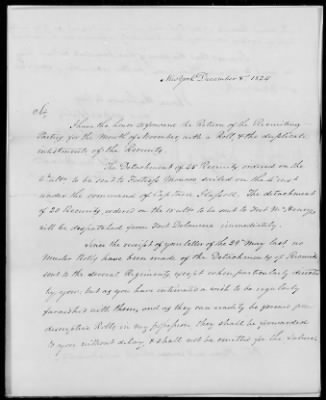 New York December 8. 1824
Sir,
I have the honor to forward the Return of the Recruiting
Parties for the Month of November, with a Roll, & the duplicate
enlistments of the Recruits.
The Detachment of 25 Recruits ordered on the
to be sent to Fortress Monroe sailed on the
under the command of Captain. The detachment
of 20 Recruits, ordered on the to be sent to Fort McHenry
will be despatched from Fort Delaware immediately.
Since the receipt of your letter of the 28th May last no
Muster Rolls have been made of the Detachments of Recruits
sent to the several Regiments except when particularly directed
by you: but as you have intimated a wish to be regularly
furnished with them, and as they can easily be formed from
descriptive Rolls in my possession, they shall be forwarded
to you without delay & shall not be omitted for the future.